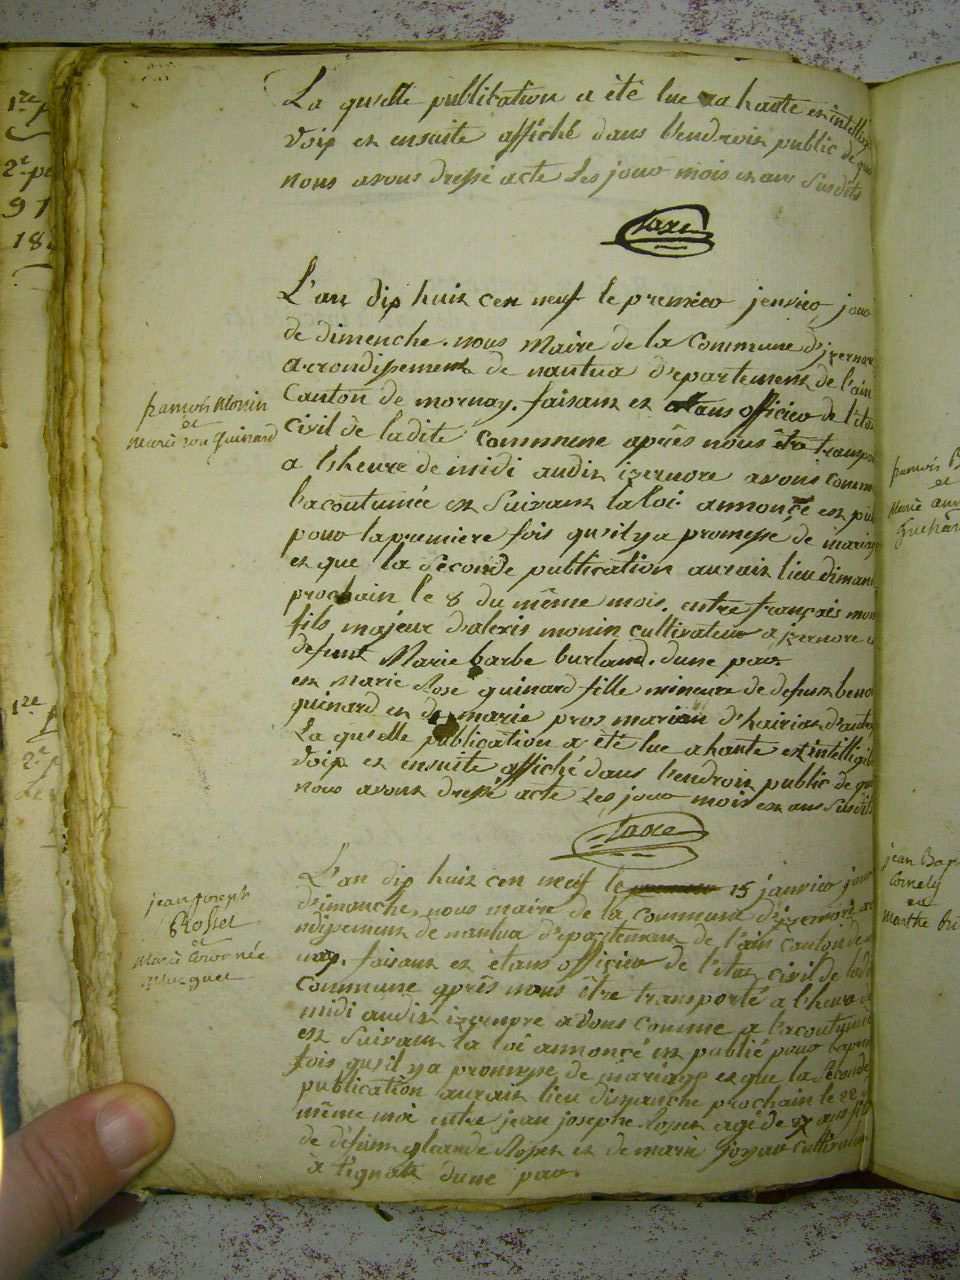 La quelle publication a été lue a haute et intellig
voix et ensuite affiché dans l'endroit public de quoi
nous avons dressé acte les jour mois et ans susdits
taxe
L'an dix huit cen neuf le premier jenvier jour
de dimenche. nous Maire de la Commune d'izernore
arrondissement de nantua d'epartement de l'ain
Canton de mornay. faisant et etans officier de l'état
civil de la dite commune après nous être transp
a l'heure de midi audit izernore avons comme
l'acoutumée et suivant la loi annonçé et pub
pour la premiere fois qu'il y a promesse de mariage
et que la seconde publication aurait lieu dimanc
prochain le 8 du même mois. entre français monin
fils majeur d'alexis monin cultivateur a izernore
defunt Marie barbe burland. dune part
et Marie Rose guinard fille mineure de defunt beno
guinard et de marie pros marion d'hairiat d'autre
La quelle publication a été lue a haute et intelligib
voix et ensuite affiché dans l'endroit public de quoi
nous avons dressé acte les jour mois et ans susdits
taxe
L'an dix huit cen neuf le premier 15 janvier jour
dimanche, nous maire de la commune d'izernore ar
ndissement de nantua d'epartement de l'ain canton de
nay. faisant et etans officier de l'état civil de ladi
commune après nous être transporté a l'heure de
midi audit izernore avons comme a l'acoutumé
et suivant la loi annonçé et publié pour la prem
fois qu'il y a promesse de mariage et que la seconde
publication aurait lieu dimanche prochain le 22
même moi entre jean joseph Rosset agé de 27 ans fils
de défunt Rosset et de marie cultivateur
à tignat dune par.
françois Monin
et
Marie rose Guinard
jean joseph
Rosset
et
Marie
1re p
2e p
91
18
1re p
2e p
françois B
et
Marie ann
jean Bap
Cornely
et
Marthe